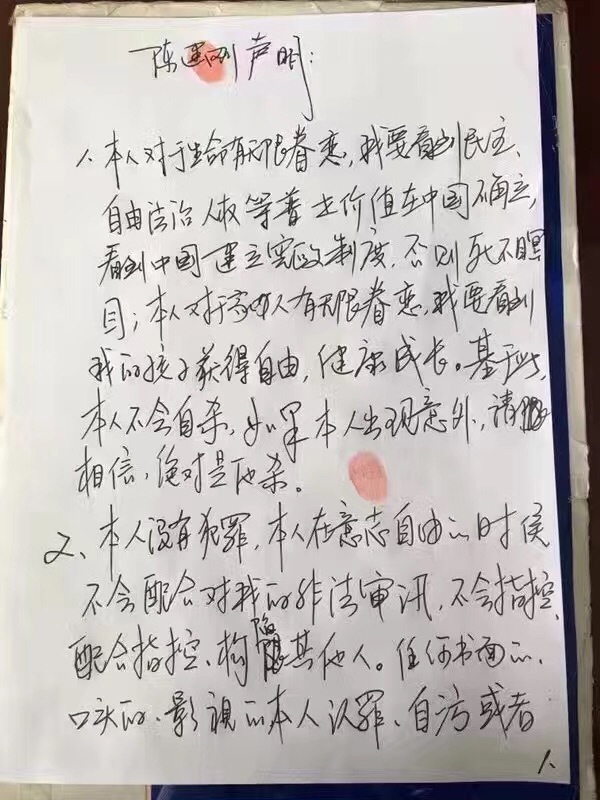 陈建刚声明:
1、本人对于生命有无限眷恋,我要看到民主、
自由法治人权等普世价值在中国确立,
看到中国建立宪政制度,否则死不瞑
目;本人对于家人有无限眷恋,我要看到
我的孩子获得自由,健康成长。基于此,
本人不会自杀,如果本人出现意外,请
相信,绝对是他杀。
2、本人没有犯罪,本人在意志自由的时侯
不会配合对我的非法审讯,不会指控、
配合指控、构陷其他人。任何书面的、
口头的、影视的本人认罪、自污或者
1、